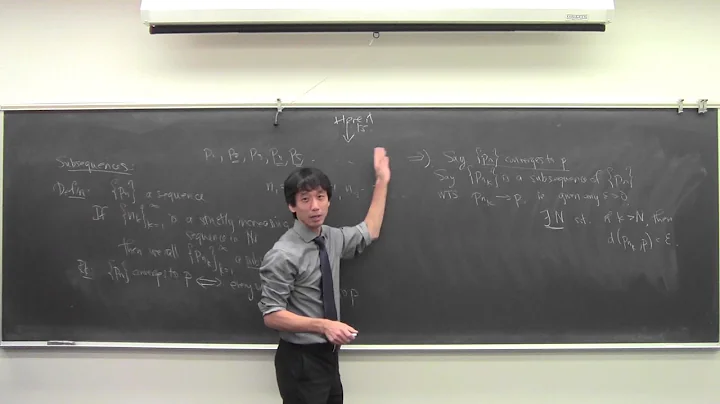 Subsequences:
Defn. {pₙ} a sequence
If {nₖ}ₖ₌₁^∞ is a strictly increasing
sequence in ℕ
then we call {pₙₖ}ₖ₌₁^∞ a
{pₙ} converges to p ⟺ every
to p
p₁, p₂, p₃, p₄, p₅ . . .
⇒) Say {pₙ} converges to p
Say {pₙₖ} is a subsequence of {pₙ}
WTS pₙₖ → p, ie given any ε>0
∃ N st. if k>N, then
d(pₙₖ, p) < ε.